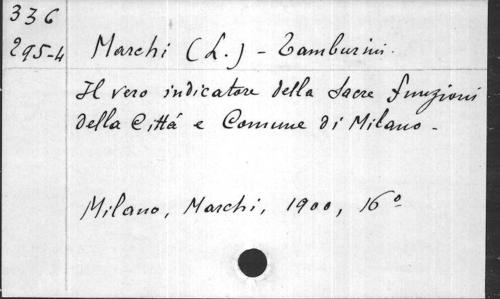 336
295-4
Marchi (L.) - Tamburini.
Il vero indicatore della Sacre funzioni
della Cittá e Comune di Milano -
Milano, Marchi, 1900, 16°